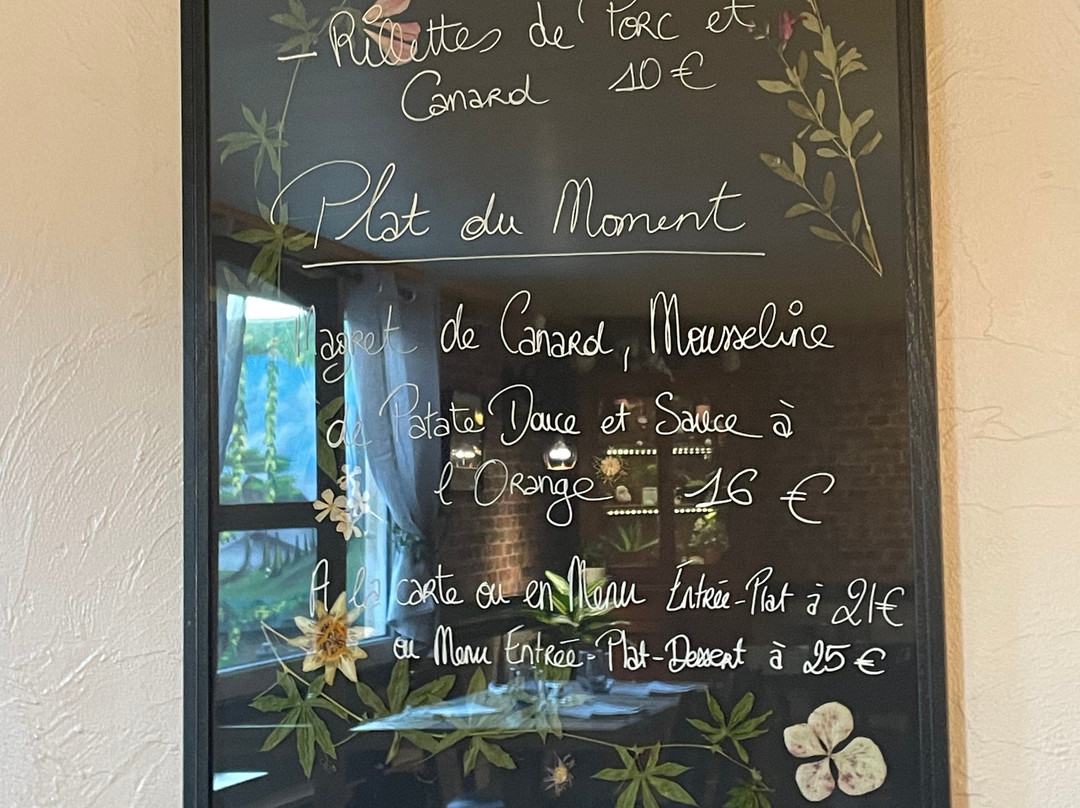 - Rillettes de Porc et
Canard 10€
Plat du Moment
Magret de Canard, Mousseline
de Patate Douce et Sauce à
l'Orange 16 €
A la carte ou en Menu Entrée-Plat à 21€
ou Menu Entrée-Plat-Dessert à 25€